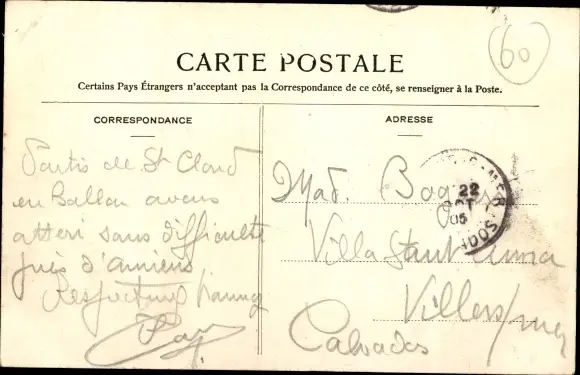 60
CARTE POSTALE
Certains Pays Étrangers n'acceptant pas la Correspondance de ce côté, se renseigner à la Poste.
CORRESPONDANCE
Partis de St Cloud
en Ballon avons
atteri sans difficulté
près d'amiens
ADRESSE
Mad.
Villa Sant Anna
Villers/mer
Calvados
22
OCT
05